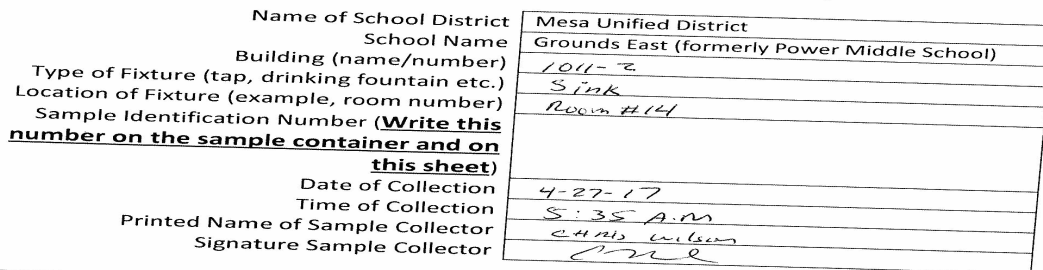 Name of School District Mesa Unified District
School Name Grounds East (formerly Power Middle School)
Building (name/number) 1011-2
Type of Fixture (tap, drinking fountain etc.) Sink
Location of Fixture (example, room number) Room #14
Sample Identification Number (Write this
number on the sample container and on
this sheet)
Date of Collection 4-27-17
Time of Collection 5:35 A.M
Printed Name of Sample Collector CHRIS Wilson
Signature Sample Collector